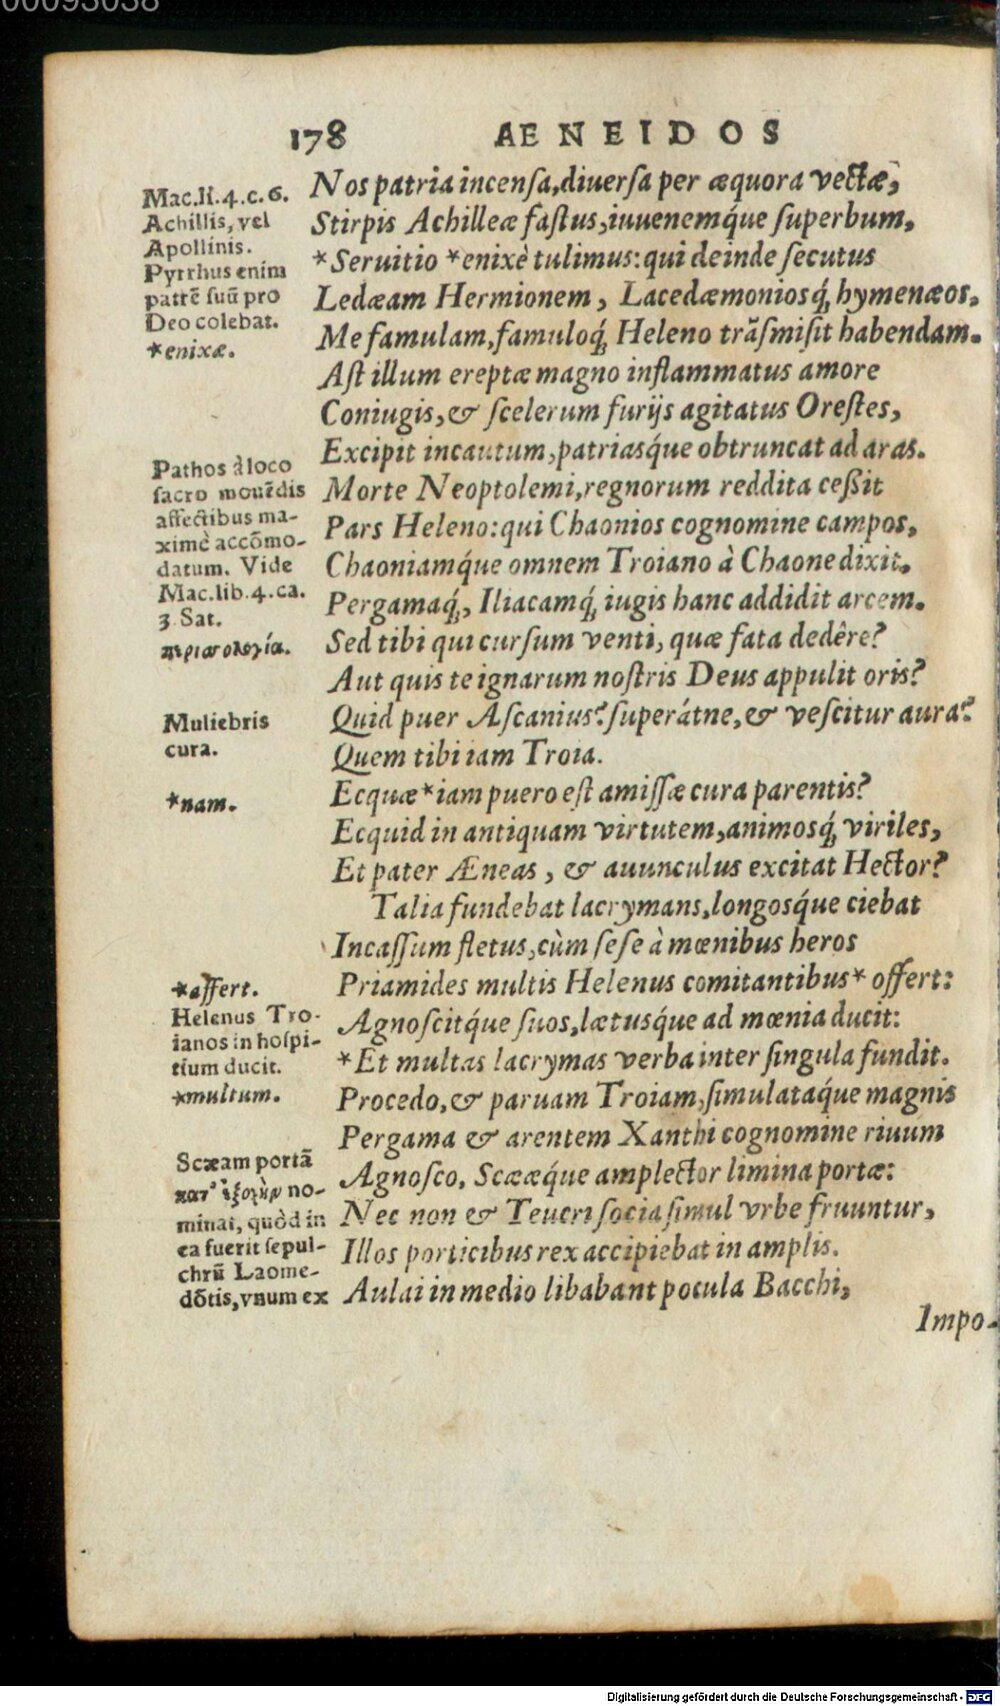 00093038
178 AENEIDOS
Nos patria incensa,diuersa per æquora vectæ,
Stirpis Achilleæ fastus,iuuenemq́ue superbum,
*Seruitio *enixè tulimus:qui deinde secutus
Ledæam Hermionem, Lacedæmoniosq́; hymenæos,
Me famulam,famuloq́; Heleno trãsmisit habendam.
Ast illum ereptæ magno inflammatus amore
Coniugis,& scelerum furijs agitatus Orestes,
Excipit incautum,patriasq́ue obtruncat ad aras.
Morte Neoptolemi,regnorum reddita ceßit
Pars Heleno:qui Chaonios cognomine campos,
Chaoniamq́ue omnem Troiano à Chaone dixit,
Pergamaq́;, Iliacamq́; iugis hanc addidit arcem.
Sed tibi qui cursum venti, quæ fata dedêre?
Aut quis te ignarum nostris Deus appulit oris?
Quid puer Ascanius? superátne,& vescitur aura?
Quem tibi iam Troia.
Ecquæ *iam puero est amissæ cura parentis?
Ecquid in antiquam virtutem,animosq́; viriles,
Et pater Æneas, & auunculus excitat Hector?
Talia fundebat lacrymans,longosq́ue ciebat
Incassum fletus,cùm sese à mœnibus heros
Priamides multis Helenus comitantibus* offert:
Agnoscitq́ue suos,lætusq́ue ad mœnia ducit:
*Et multas lacrymas verba inter singula fundit.
Procedo,& paruam Troiam,simulataq́ue magnis
Pergama & arentem Xanthi cognomine riuum
Agnosco, Scææq́ue amplector limina portæ:
Nec non & Teucri socia simul vrbe fruuntur,
Illos porticibus rex accipiebat in amplis.
Aulai in medio libabant pocula Bacchi,
Impo-
Mac.li.4.c.6.
Achillis, vel
Apollinis.
Pyrrhus enim
patrẽ suũ pro
Deo colebat.
*enixæ.
Pathos à loco
sacro mouẽdis
affectibus ma-
ximè accõmo-
datum. Vide
Mac.lib.4.ca.
3 Sat.
Muliebris
cura.
*nam.
*affert.
Helenus Tro-
ianos in hospi-
tium ducit.
*multum.
Scæam portã
κατ' ἐξοχὴν no-
minat, quòd in
ea fuerit sepul-
chrũ Laome-
dõtis,vnum ex
Digitalisierung gefördert durch die Deutsche Forschungsgemeinschaft - DFG